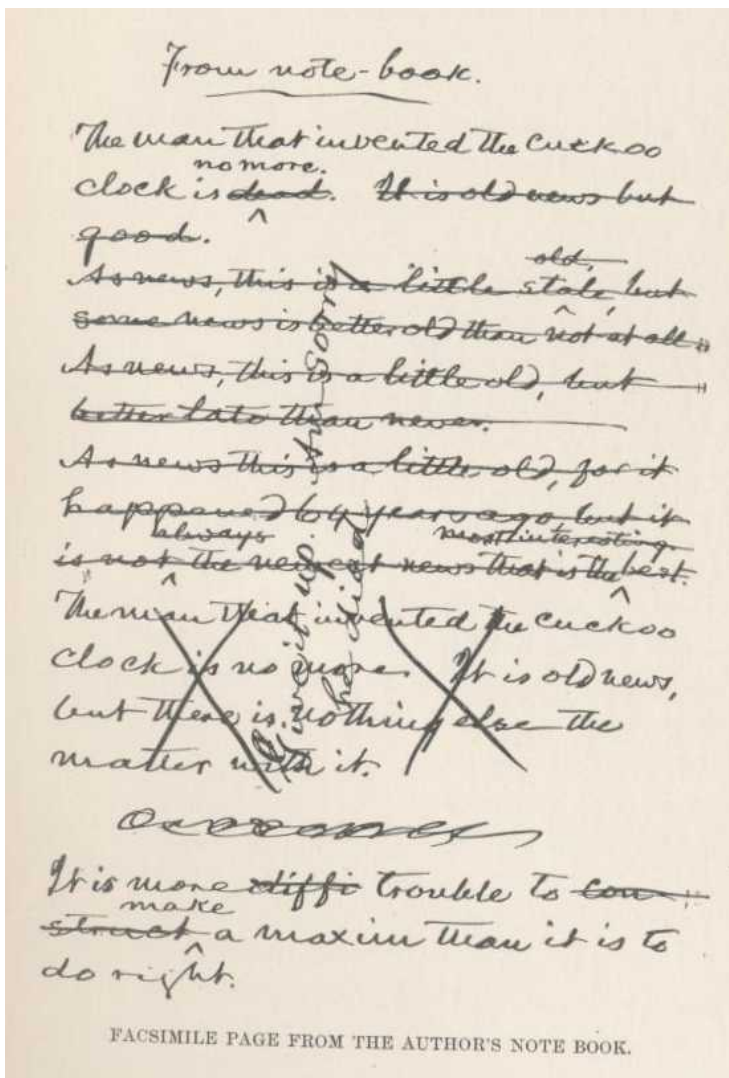 From note-book.
The man that invented the cuckoo
no more.
clock is dead. It is old news but
good.
old,
As news, this is a little stale, but
some news is better old than not at all.
As news, this is a little old, but
better late than never.
As news this is a little old, for it
happened 64 years ago but it
always most interesting.
is not the newest news that is the best.
The man that invented the cuckoo
clock is no more. It is old news,
but there is nothing else the
matter with it.
Give it up. Am sorry
he died
It is more diffi trouble to con-
make
struct a maxim than it is to
do right.
FACSIMILE PAGE FROM THE AUTHOR'S NOTE BOOK.